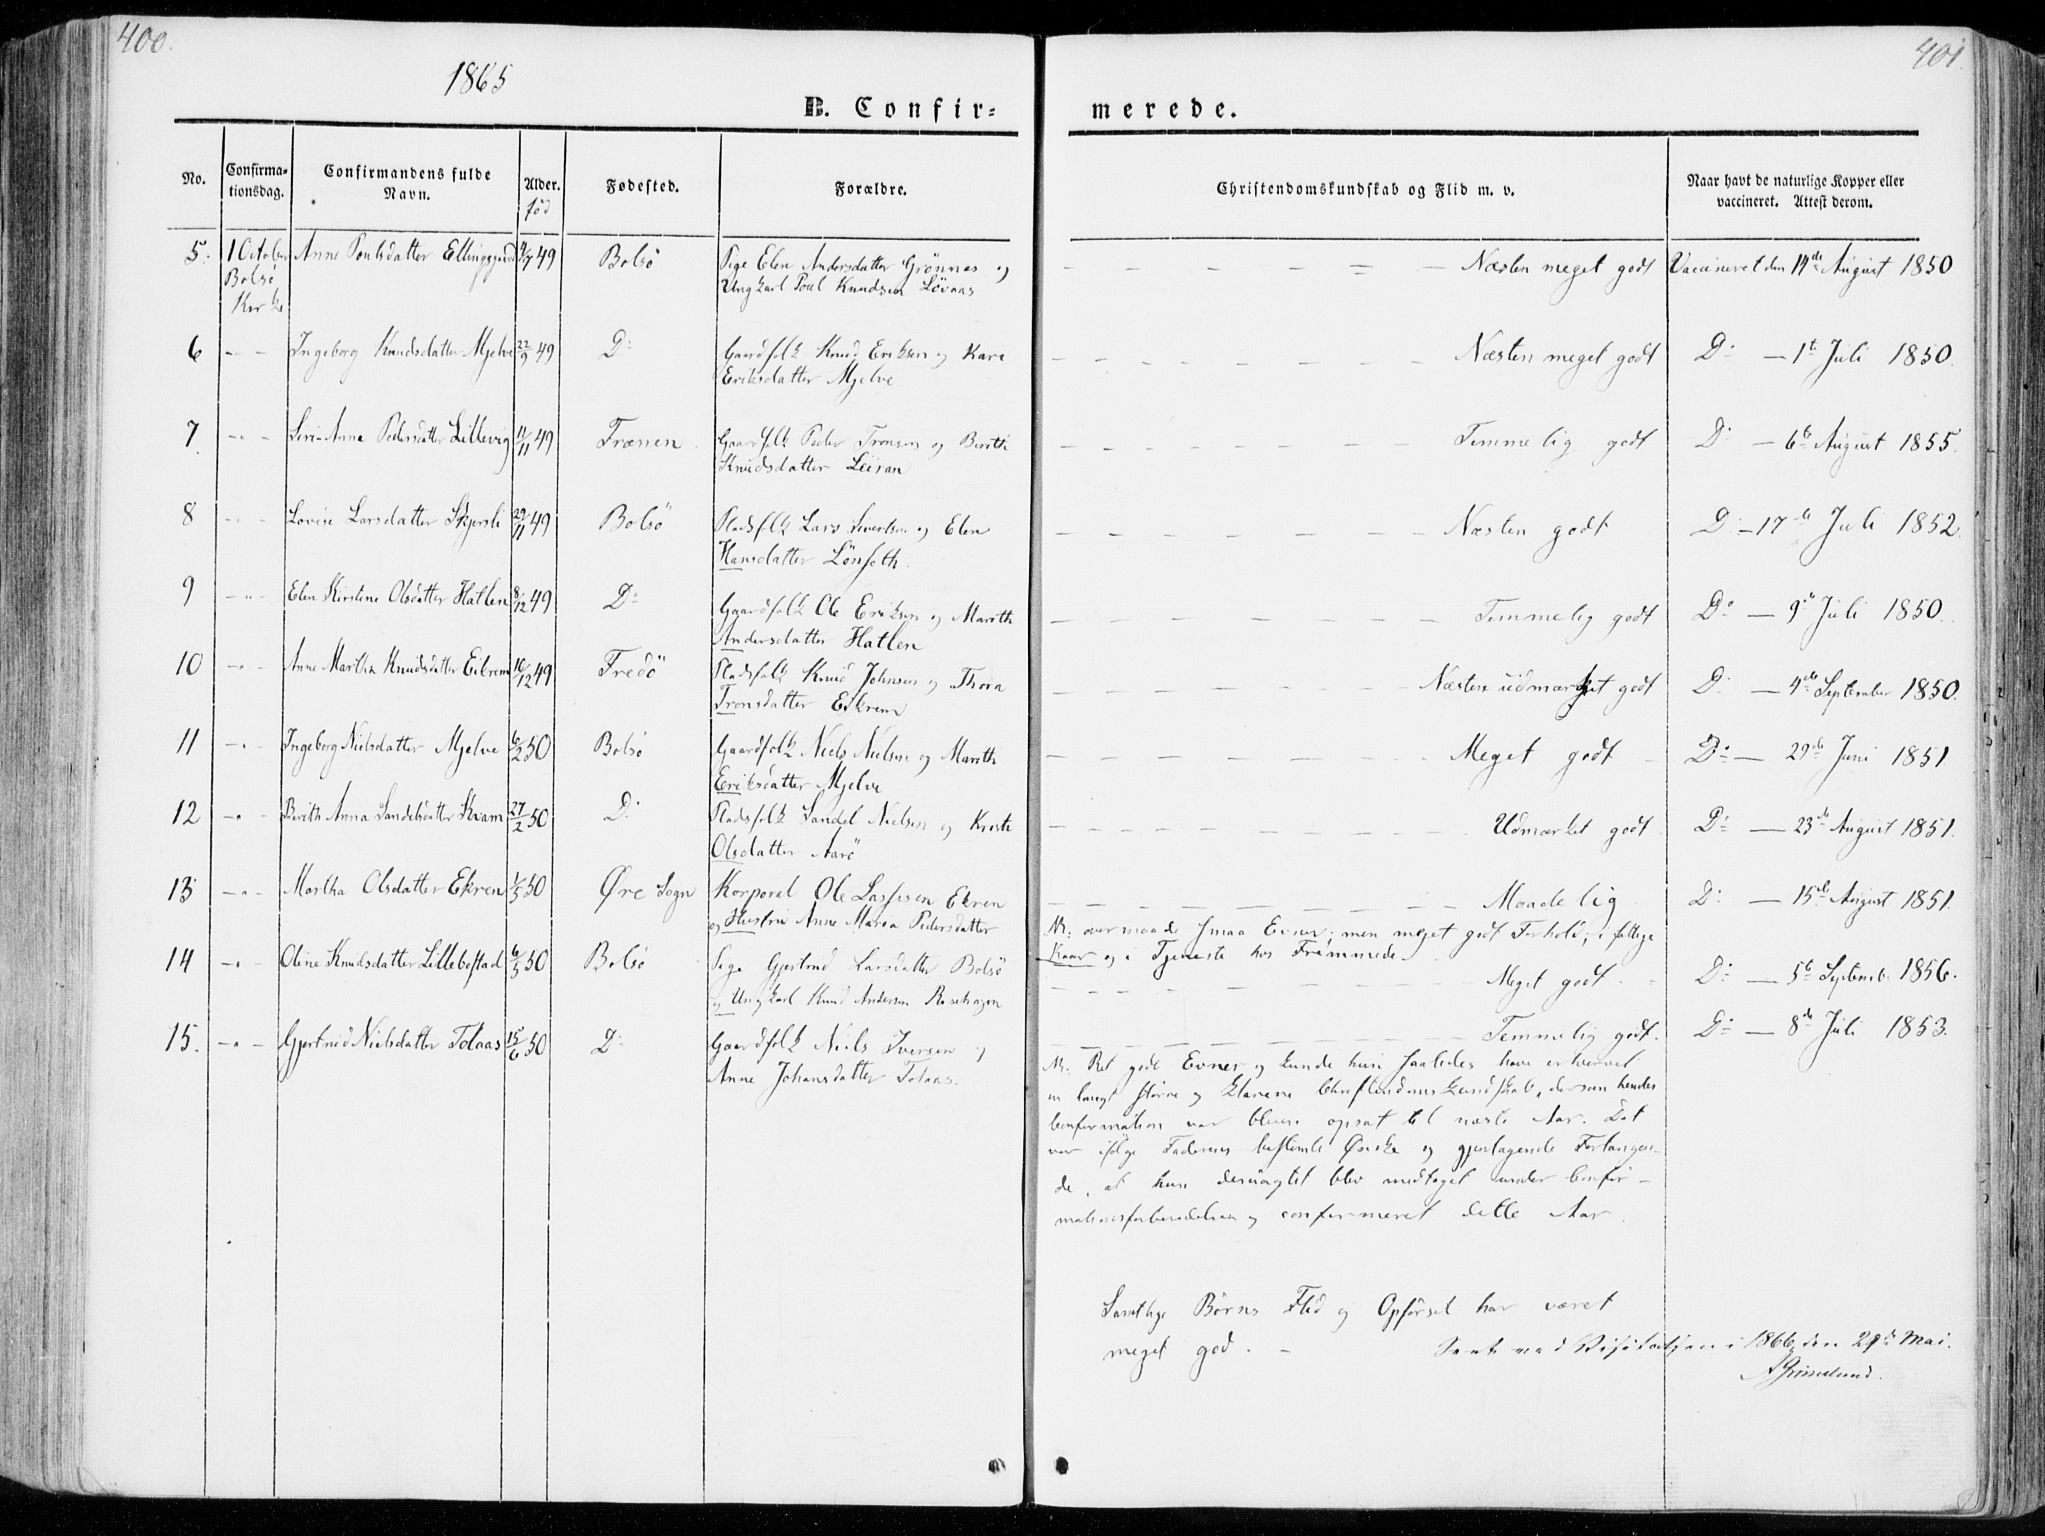 400.
401.
1865
B. Confir=
merede.
No.
Confirma-
tionsdag.
Confirmandens fulde
Navn.
Alder.
fød
Fødested.
Forældre.
Christendomskundskab og Flid m. v.
Naar havt de naturlige Kopper eller
vaccineret. Attest derom.
5. 1 October Anne Poulsdatter Ellingsgaard 49 Bolsö Pige Elen Andersdatter Grönnes og Næsten meget godt Vaccineret den 14de August 1850
Bolsö Ungkarl Poul Knudsen Lövaas
Kirke
6 Ingeborg Knudsdatter Mjelve 22/9 49 D: Gaardfolk Knud Eriksen og Kari Næsten meget godt D: — 1te Juli 1850.
Eriksdatter Mjelve
7 Siri Anna Pedersdatter Lillevig 11/11 49 Frænen Gaardfolk Peder Tronsen og Berith Temmelig godt D: — 6te August 1855.
Knudsdatter Leiran
8 Lovise Larsdatter Skjersli 29/11 49 Bolsö Pladsfolk Lars Sivertsen og Elen Næsten godt D: — 17de Juli 1852.
Hansdatter Lönseth.
9 Elen Kirstine Olsdatter Hatlen 8/12 49 D: Gaardfolk Ole Eriksen og Marith Temmelig godt D: — 9de Juli 1850.
Andersdatter Hatlen
10 Anne Martha Knudsdatter Eikrem 16/12 49 Fredö Pladsfolk Knud Johnsen og Thora Næsten udmærket godt D: — 4de September 1850.
Tronsdatter Eikrem
11 Ingeborg Nielsdatter Mjelve 6/2 50 Bolsö Gaardfolk Niels Nielsen og Marith Meget godt D: — 29de Juni 1851
Eriksdatter Mjelve
12 Berith Anna Sandelsdatter Kvam 27/2 50 D: Pladsfolk Sandel Nielsen og Kirsti Udmærket godt D: — 23de August 1851.
Olsdatter Aarö
13 Martha Olsdatter Ekren 1/5 50 Øre Sogn Korporal Ole Lassesen Ekren Maadelig D: — 15de August 1851.
og Hustru Anne Maria Pedersdatter
NB: overmaade smaa Evner; men meget godt Forhold; i fattige
Kaar og i Tjeneste hos Fremmede
14 Oline Knudsdatter Lillebostad 6/5 50 Bolsö Pige Gjertrud Larsdatter Bolsö Meget godt. D: — 5te Septemb. 1856.
og Ungkarl Knud Andersen
15. Gjertrud Nielsdatter Tolaas 15/6 50 D: Gaardfolk Niels Iversen og Temmelig godt. D: — 8de Juli 1853.
Anne Johansdatter Tolaas.
NB: Ret gode Evner og kunde hun saaledes have erhvervet
en langt större og klarere Christendomskundskab, dersom hendes
Confirmation var bleven opsat til næste Aar. Det
var ifölge Faderens bestemte Önske og gjentagende Forlangen-
de, at hun desuagtet blev medtaget under Confir-
mationsforberedelsen og confirmeret dette Aar.
Samtlige Börns Flid og Opförsel har været
meget god.
Seet ved Visitatsen i 1866, den 29de Mai.
Grimelund.